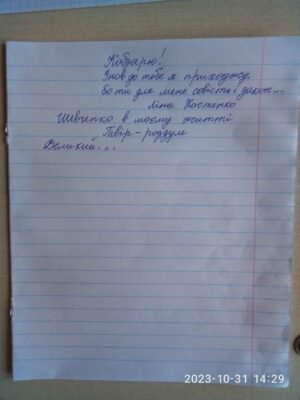 Кобзарю!
Знов до тебе я приходжу,
бо ти для мене совість і закон...
Ліна Костенко
Шевченко в моєму житті
Твір-роздум
Великий...
2023-10-31 14:29